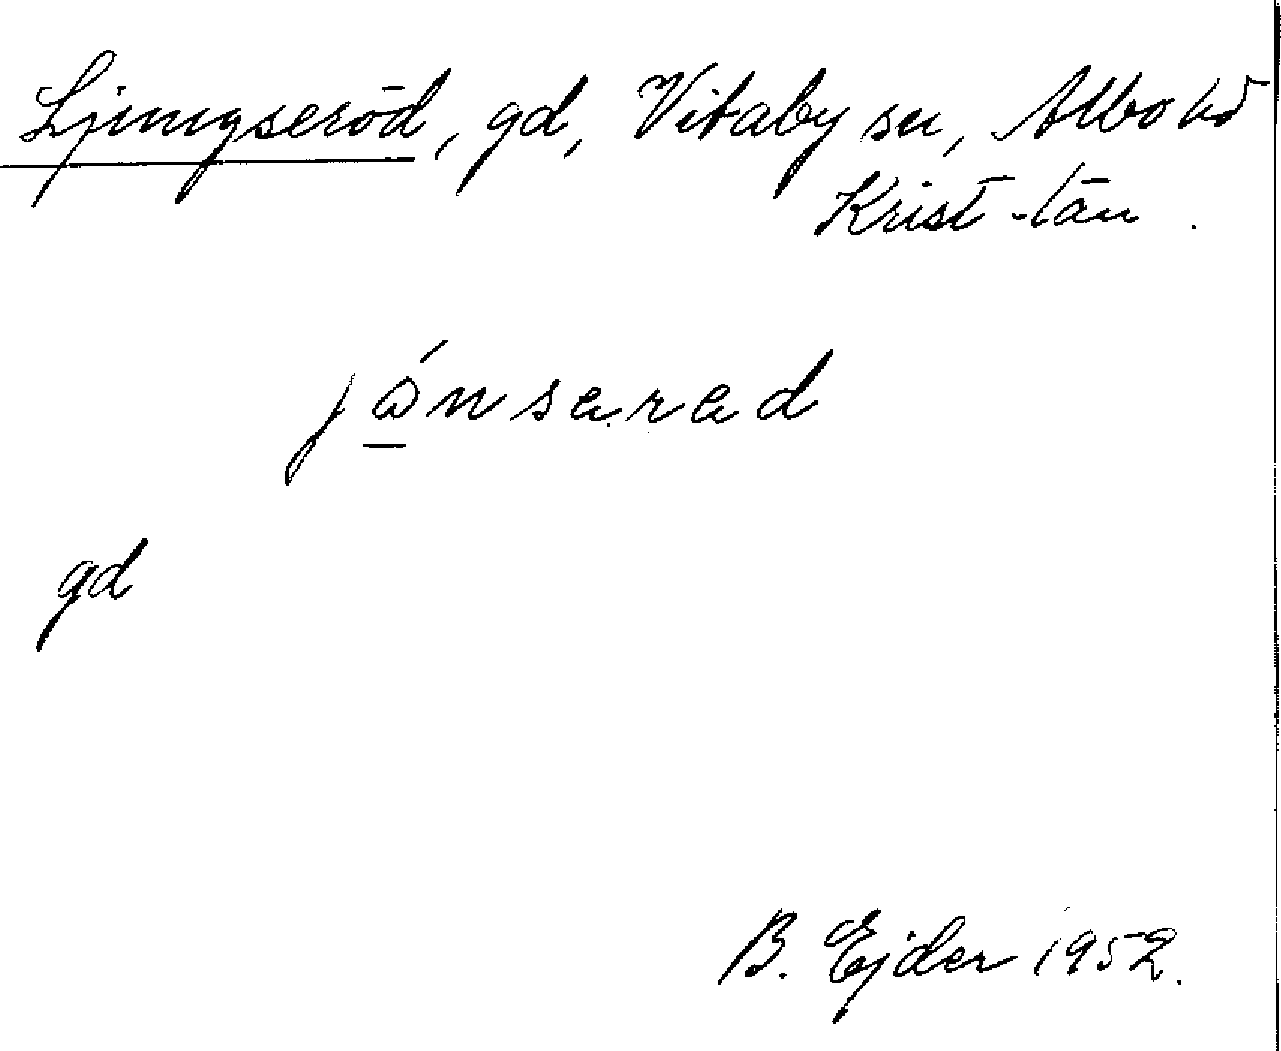 Ljungseröd, gd, Vitaby sn, Albo hd
Krist-län.
jǻnsarad
gd
B. Ejder 1952.